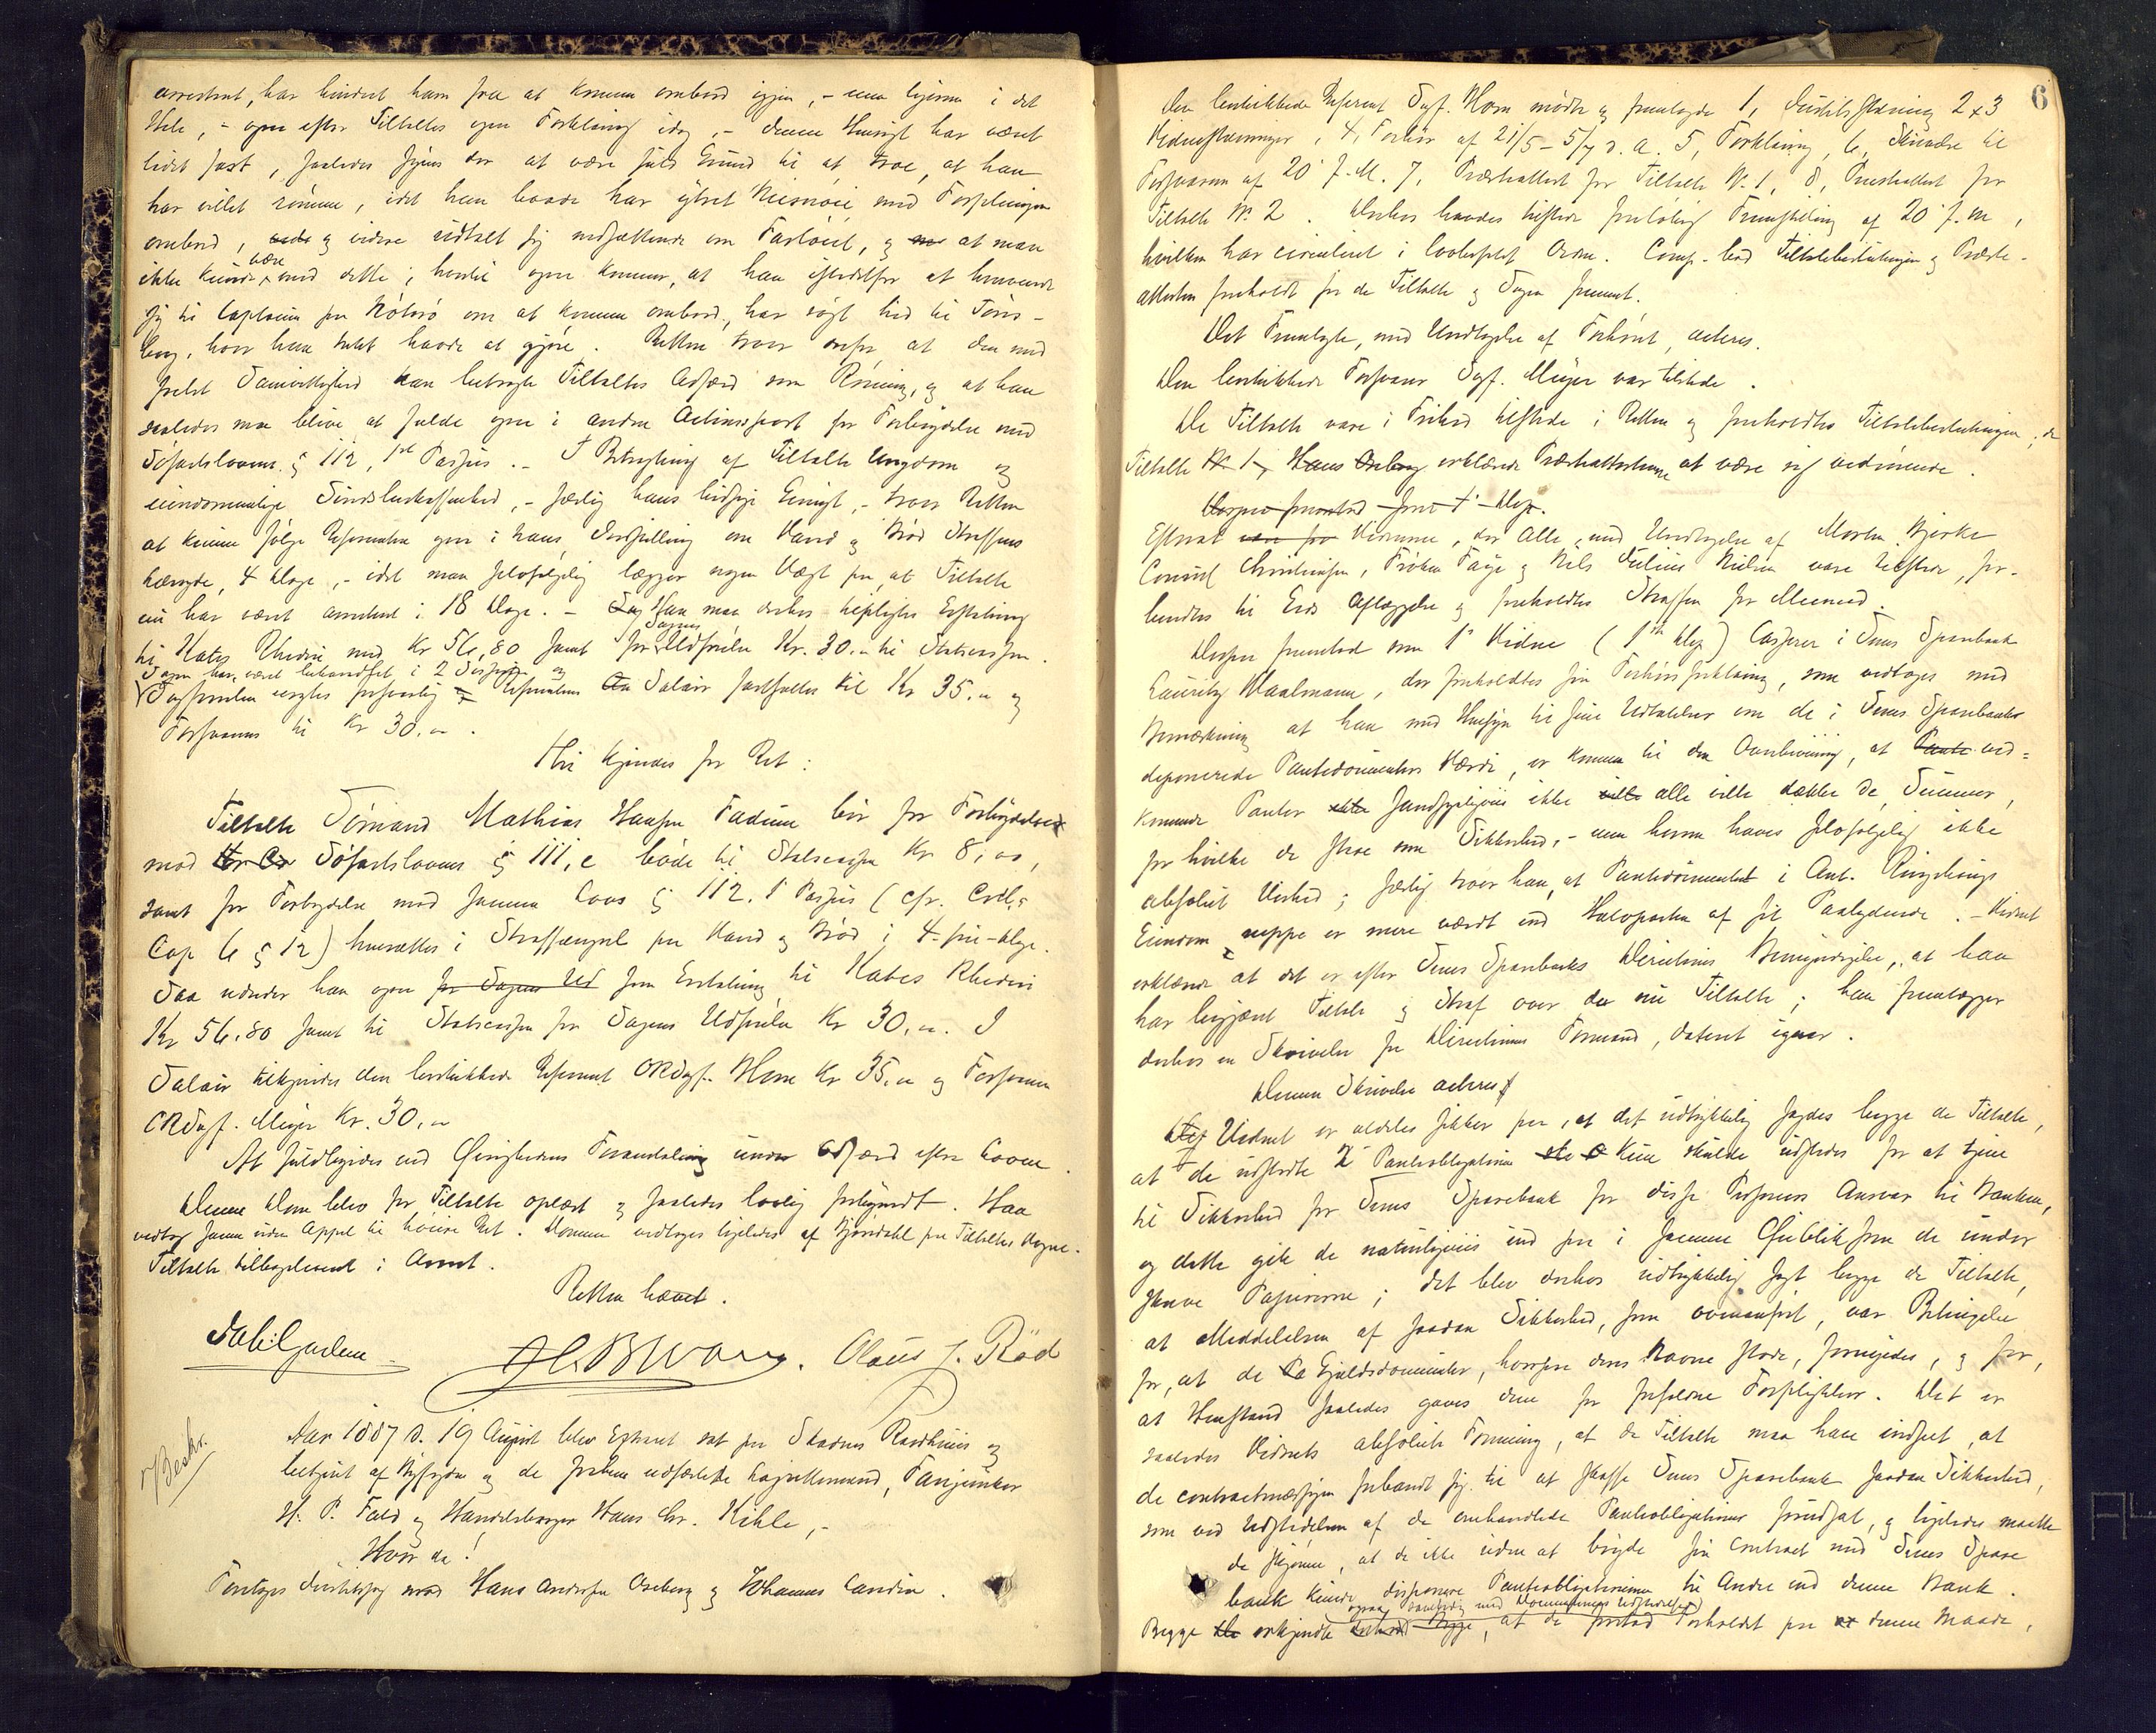 arresteret, har hindret ham fra at komme ombord igjen, - men hjemme i det
Hele, - ogsaa efter Tiltaltes egen Forklaring idag, - denne Hensigt har været
lidet fast, saaledes synes der at være fuld Grund til at troe, at han
har villet rømme, idet han baade har ytret Misnøie med Forpleiningen
ombord, og videre udtalt sig nedsættende om Fartøiet, og at man
ikke kunde være med dette; hertil ogsaa kommer, at han istedetfor at henvende
sig til Captainen paa Nøterø om at komme ombord, har søgt hid til Tøns-
berg, hvor han Intet havde at gjøre. Retten troer derfor at den med
fuld Samvittighed kan betragte Tiltaltes Adfærd som Rømning, og at han
saaledes maa blive at fælde ogsaa i anden Actionspost for Forbrydelse mod
Søfartslovens § 112, 1ste Passus. - I Betragtning af Tiltaltes Ungdom og
eiendommelige Sindsbeskaffenhed, - særlig hans hidsige Gemyt, - troer Retten
at kunne følge Referenten ogsaa i hans Indstilling om Vand og Brød Straffens
længde, 4 Dage, - idet man selvfølgelig lægger nogen Vægt paa at Tiltalte
nu har været arresteret i 18 Dage. - Han maa derhos tilpligtes Erstatning
til Kabes Rhederi med Kr 56,80 samt for Sagens Udførelse Kr. 30.- til Statscassen.
Sagen har været behandlet i 2 Sessioner og
Sagførelsen ansees forsvarlig Referentens Salair fastsættes til Kr 35.- og
Forsvarerens til Kr 30.-.
Thi kjendes for Ret:
Tiltalte Sømand Mathias Hansen Fadum bør for Forbrydelse
mod Søfartslovens § 111, c bøde til Statscassen Kr 8,00,
samt for Forbrydelse mod samme Lovs § 112. 1 Passus (cfr. Crdl.s
Cap 6 § 12) hensættes i Straffængsel paa Vand og Brød i 4 - fire - Dage.
Saa udreder han ogsaa som Erstatning til Kabes Rhederi
Kr 56.80 samt til Statscassen for Sagens Udførelse Kr 30.-. I
Salair tilkjendes den beskikkede Referent ORSagf. Horn Kr 35.- og Forsvarer
ORSagf. Meyer Kr. 30.-
At fuldbyrdes ved Øvrighedens Foranstaltning under Adfærd efter Loven.
Denne Dom blev for Tiltalte oplæst og saaledes lovlig forkyndt. Han
vedtog samme uden Appel til høiere Ret. Dommen vedtoges ligeledes af Bjørndahl paa Tiltaltes Vegne.
Tiltalte tilbageleveret i Arrest.
Retten hævet.
Olaus J. Rød
/Beskr.
Aar 1887 d. 19 August blev Extraret sat paa Stadens Raadhuus og
betjent af Byfogden og de foruden udfærdede Lagrettemænd, Fanejunker
H. P. Fald og Handelsborger Hans Chr. Kihle, -
Hvor da!
Foretoges Justitssag mod Hans Andersen Aseberg og Johannes Landin.
6
Den beskikkede Referent Sagf. Horn mødte og fremlagde 1, Justitsstævning 2 & 3
Vidnestævninger, 4, Forhør af 21/5 - 5/7 d. A. 5, Forklaring, 6, Skrivelse til
Forsvareren af 20 f. M. 7, Præsteattest for Tiltalte No 1, 8, Præsteattest for
Tiltalte No. 2. Derhos havdes tilstede foreløbig Fremstilling af 20 f. M,
hvilken har circuleret i lovbefalet Orden. Comp. lod Tiltalebeslutningen og Præste-
attesten foreholdt for de Tiltalte og Sagen fremmet.
Det Fremlagte, med Undtagelse af Forhøret, acteres.
Den beskikkede Forsvarer Sagf. Meyer var tilstede.
De Tiltalte vare i Frihed tilstede i Retten og foreholdtes Tiltalebeslutningen; de
Tiltalte erklærede Præsteattesterne at være sig vedrørende.
Derpaa fremstod
Efterat Vidnerne, der Alle, med Undtagelse af Morten Bjerke
Consul Christensen, Frøken Faye og Nils Julius Nielsen vare tilstede, for-
beredtes til Eds Aflæggelse og foreholdtes Straffen for Meeneed.
Derpaa fremstod som 1' Vidne (1ste Dep) Casserer i Sems Sparebank
Lauritz Waalmann, der foreholdtes sin Forhørsforklaring, som vedtoges med
Bemærkning at han med Hensyn til sine Udtalelser om de i Sems Sparebank
deponerede Pantedocumenters Værdi, er kommen til den Overbeviisning, at ved-
kommende Panter sandsynligviis ikke alle ville dække de Summer,
for hvilke de staae som Sikkerhed, - men herom haves selvfølgelig ikke
absolut Vished; særlig troer han, at Pantedocumentet i Ant. Ringdrengs
Eiendom neppe er mere værdt end Halvparten af sit Paalydende. - Vidnet
erklærede at det er efter Sems Sparebanks Directions Bemyndigelse, at han
har begjært Tiltale og Straf over de nu Tiltalte; han fremlægger
derhos en Skrivelse fra Directionens Formand, dateret igaar.
Denne Skrivelse acteres
Vidnet er aldeles sikker paa, at det udtrykkelig sagdes begge de Tiltalte,
at de udstedte 2 Pantobligationer kun skulde udstedes for at tjene
til Sikkerhed for Sems Sparebank for disse Personers Ansvar til Banken,
og dette gik de naturligviis ind paa i samme Øieblik som de under
skreve Papirerne; det blev derhos udtrykkelig sagt begge de Tiltalte,
at Meddelelsen af saadan Sikkerhed, som ovenanført, var Betingelse
for, at de Gjældsdocumenter, hvorpaa deres Navne stode, fornyedes, og for,
at Henstand saaledes gaves dem for forfaldne Forpligtelser. Det er
saaledes Vidnets absolute Formening, at de Tiltalte maa have indseet, at
de contractmæssigen forbandt sig til at skaffe Sems Sparebank saadan Sikkerhed,
som ved Udstedelsen af de omhandlede Pantobligationer forudsat, og ligeledes maatte
de skjønne, at de ikke uden at bryde sin Contract med Sems Spare
bank kunde disponere Pantobligationerne til Andre end denne Bank.
Begge erkjendte, at de forstod Forholdet paa denne Maade,